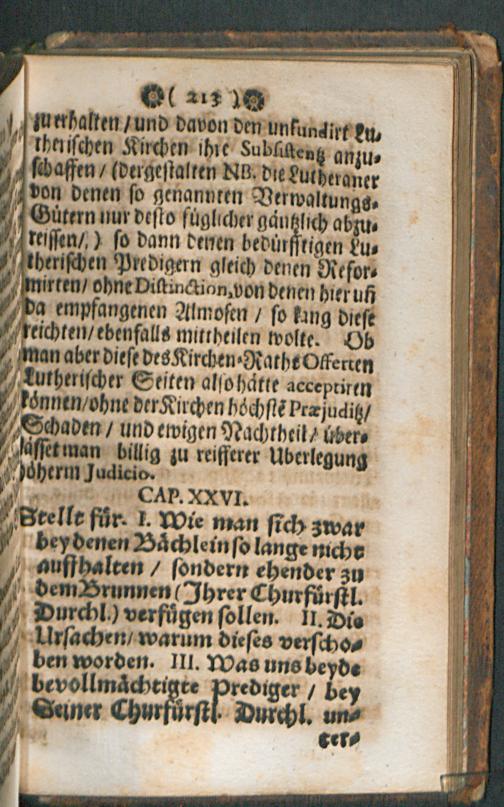 ( 213 )
zu erhalten / und davon den unfundirt Lu-
therischen Kirchen ihre Subsistentz anzu-
schaffen / (dergestalten NB. die Lutheraner
von denen so genannten Verwaltungs-
Gütern nur desto füglicher gäntzlich abzu-
reissen/, ) so dann denen bedürfftigen Lu-
therischen Predigern gleich denen Refor-
mirten/ ohne Distinction, von denen hier uñ
da empfangenen Almosen / so lang diese
reichten/ ebenfalls mittheilen wolte. Ob
man aber diese des Kirchen-Raths Offerten
Lutherischer Seiten also hätte acceptiren
können/ohne der Kirchen höchstẽ Præjuditz/
Schaden / und ewigen Nachtheil / über-
lässet man billig zu reifferer Uberlegung
höherm Judicio.
CAP. XXVI.
Stellt für. I. Wie man sich zwar
bey denen Bächlein so lange nicht
auffhalten / sondern ehender zu
dem Brunnen (Ihrer Churfürstl.
Durchl.) verfügen sollen. II. Die
Ursachen/ warum dieses verscho-
ben worden. III. Was uns beyde
bevollmächtigte Prediger / bey
Seiner Churfürstl. Durchl. un-
ter-